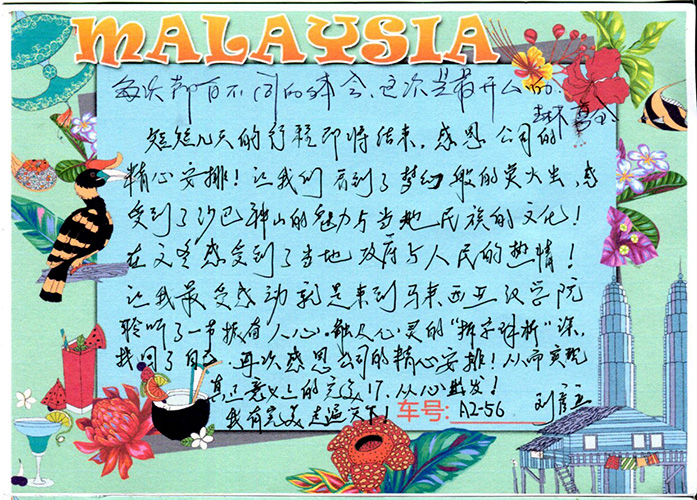 MALAYSIA
每次都有不同的体会，这次是最开心的。
短短几天的行程即将结束，感恩公司的
精心安排！让我们看到了梦幻般的萤火虫，感
受到了沙巴神山的魅力与当地民族的文化！
在文冬感受到了当地政府与人民的热情！
让我最受感动就是来到马来西亚汉学院
聆听了一节振奋人心、触及心灵的“拆字解析”课，
找回了自己，再次感恩公司的精心安排！从而实现
真正意义上的完美17，从心出发！
我有完美走遍天下！ 车号：A2-56